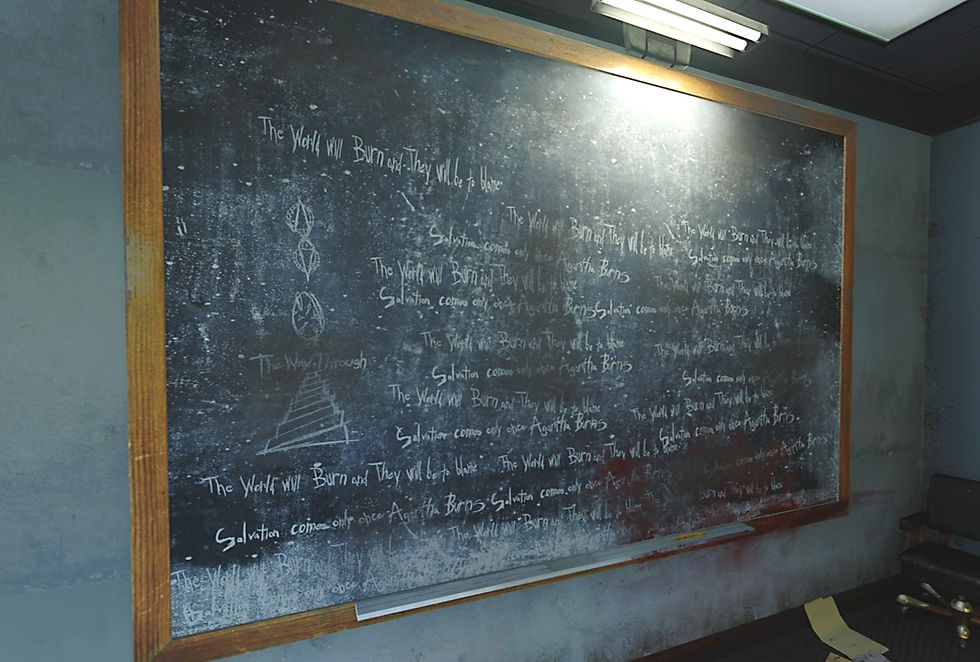 The World will Burn and They will be to blame
The World will Burn and They will be to blame
The World will Burn and They will be to blame
Salvation comes only once Agartha Burns
Salvation comes only once Agartha Burns
The World will Burn and They will be to blame
The World will Burn and They will be to blame
Salvation comes only once Agartha Burns
Salvation comes only once Agartha Burns
The World will Burn and They will be to blame
The World will Burn and They will be to blame
The Way Through
Salvation comes only once Agartha Burns
Salvation comes only once Agartha Burns
The World will Burn and They will be to blame
The World will Burn and They will be to blame
Salvation comes only once Agartha Burns
Salvation comes only once Agartha Burns.
The World will Burn and They will be to blame
The World will Burn and They will be to blame
Salvation comes only once Agartha Burns
Salvation comes only once Agartha Burns
Salvation comes only once Agartha Burns
Burn and They will be to blame
The World will Burn and They will be to
The World will Burn and
only once